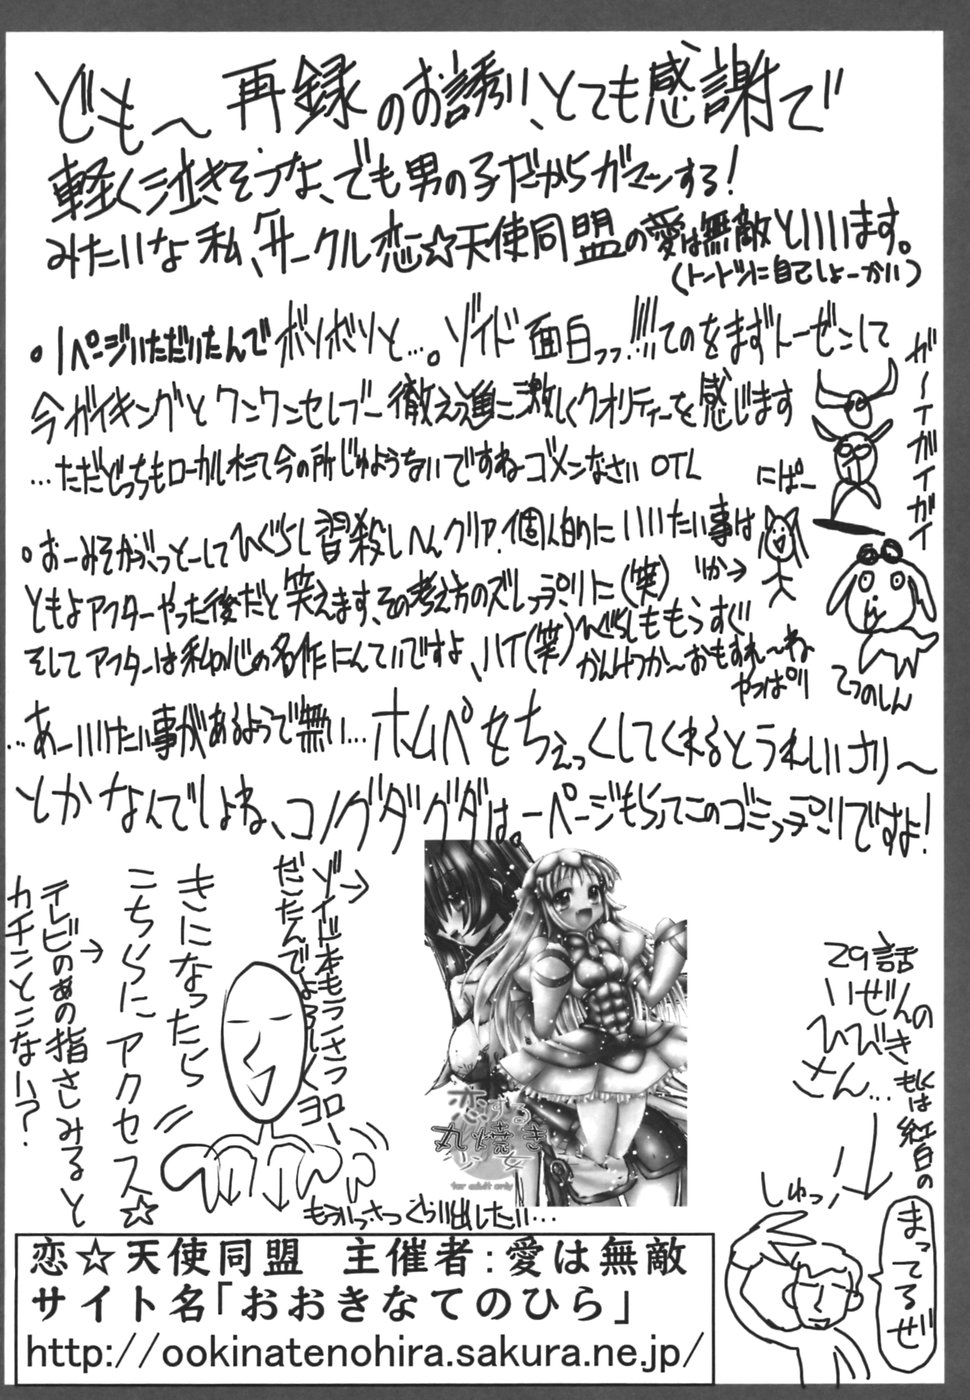 どもへ 再録のお誘い、とても感謝で
軽く泣きそうな、でも男の子だからガマンする!
みたいな私、サークル恋☆天使同盟の愛は無敵といいます。
(トートツに自己しょーかい)
・1ページいただいたんでボソボソと…。ゾイド面白っっ!!!!てのをまずトーゼンして
今ガイキングとワンワンセレプーに激しくクオリティーを感じます
…ただどっちもローカルみたいで今の所じゆようないですねゴメンなさい OTL
ガーイガイガイ
にぱー
・おーみそかぶっとーしてひぐらし皆殺しへんクリア。個人的にいいたい事は
ともよアフターやった後だと笑えます、その考え方のズレっプリに(笑)
そしてアフターは私の心の名作にんていですよ、ハイ(笑)
ひぐらしももうすぐ
かんけつか〜おもすれ〜ね
やっぱり
てつのしん
…あーいいたい事があるようで無い…ホムペをちぇっくしてくれるとうれしいさり〜
とかなんでしょね、コノグダグダは。一ページもらってこのゴミっプリですよ!
ゾイド本もラさララ
だったんでよろしくヨロー
→
きになったら
こちらにアクセス☆
→
テレビのあの指さしみると
カチンとこない?
恋する
丸焼き
for adult only
もういっさつぐらい出したい…
29話
いぜんの
ひびき
さん…
もしくは紅白の
しゅっ!
まってるぜ
恋☆天使同盟 主催者:愛は無敵
サイト名「おおきなてのひら」
http://ookinatenohira.sakura.ne.jp/